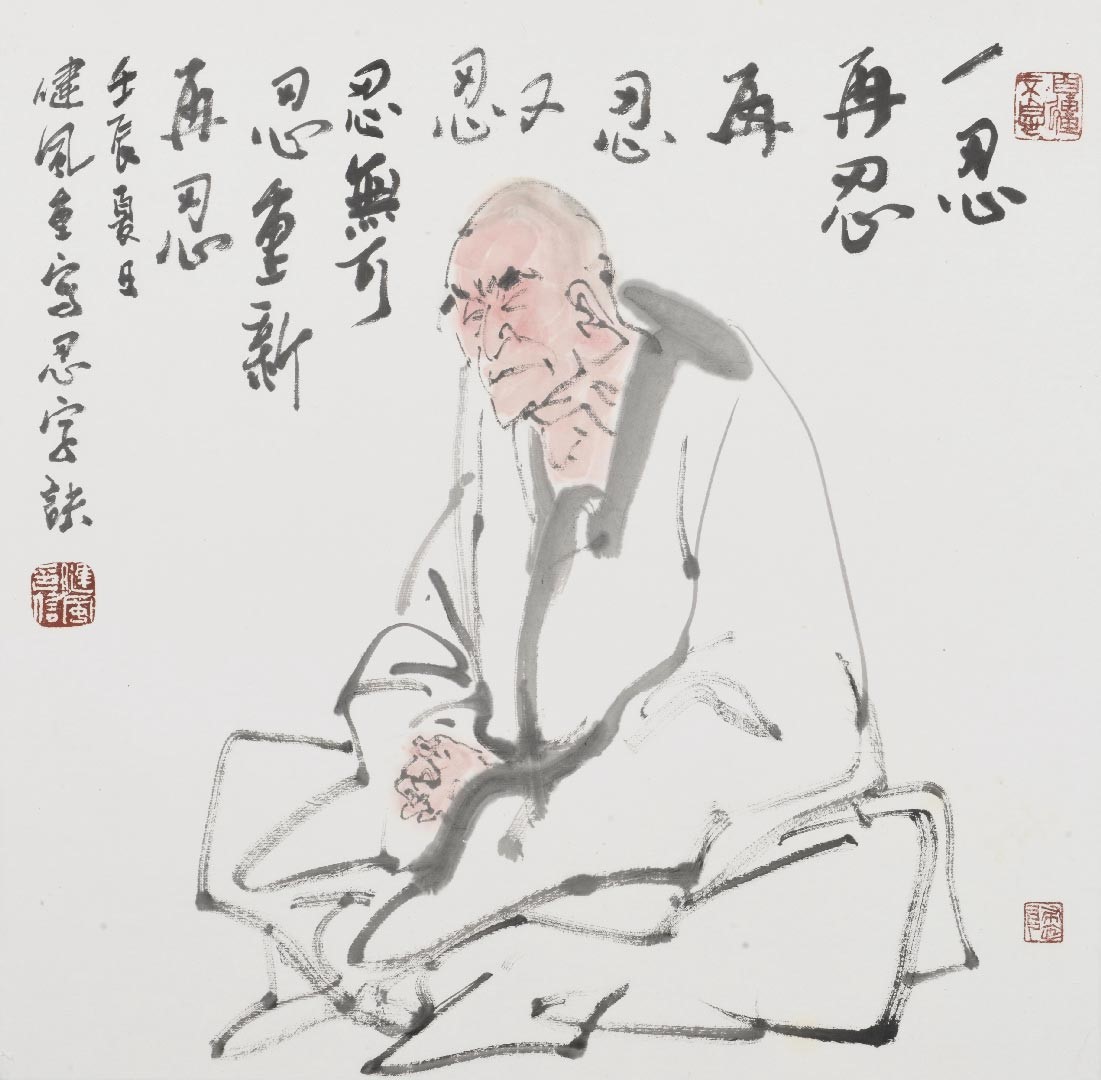 一忍
再忍
再
忍
又
忍
忍無可
忍重新
再忍
壬辰夏日
健風重寫忍字訣
健風印信